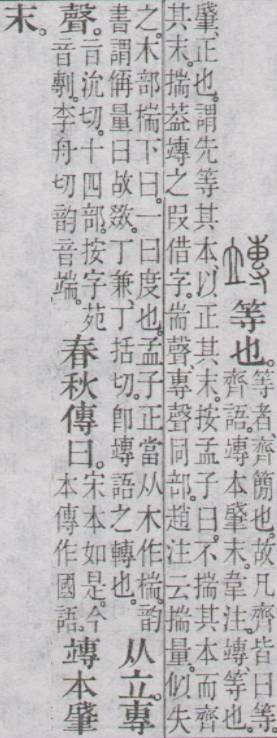 竱等也。等者、齊簡也。故凡齊皆曰等
齊語。竱本肇末。韋注。竱等也。
肇、正也。謂先等其本、以正其末。按孟子曰。不揣其本而齊
其末。揣葢竱之叚借字。耑聲、專聲同部。趙注云揣量。似失
之。木部椯下曰。一曰度也。孟子正當从木作椯。韵
書謂偁量曰故敪。丁兼、丁括切。卽竱語之轉也。
从立。專
聲。旨沇切。十四部。按字苑
音剸。李舟切韵音端。
春秋傳曰。宋本如是。今
本傳作國語。
竱本肇
末。